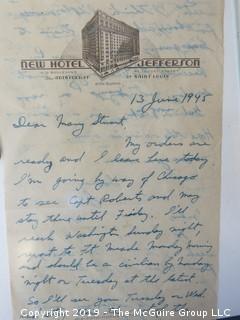 NEW HOTEL JEFFERSON
The ARISTOCRAT OF SAINT LOUIS
13 June 1945
Dear Mary Stuart,
My orders are
ready and I leave here today
I'm going by way of Chicago
to see Capt Roberts and may
stay there until Friday. I'll
reach Washington Sunday night,
report to Ft. Meade Monday morning
and should be a civilian by Monday
night or Tuesday at the latest.
So I'll see you Tuesday or Wed.
Copyright 2019 - The McGuire Group LLC